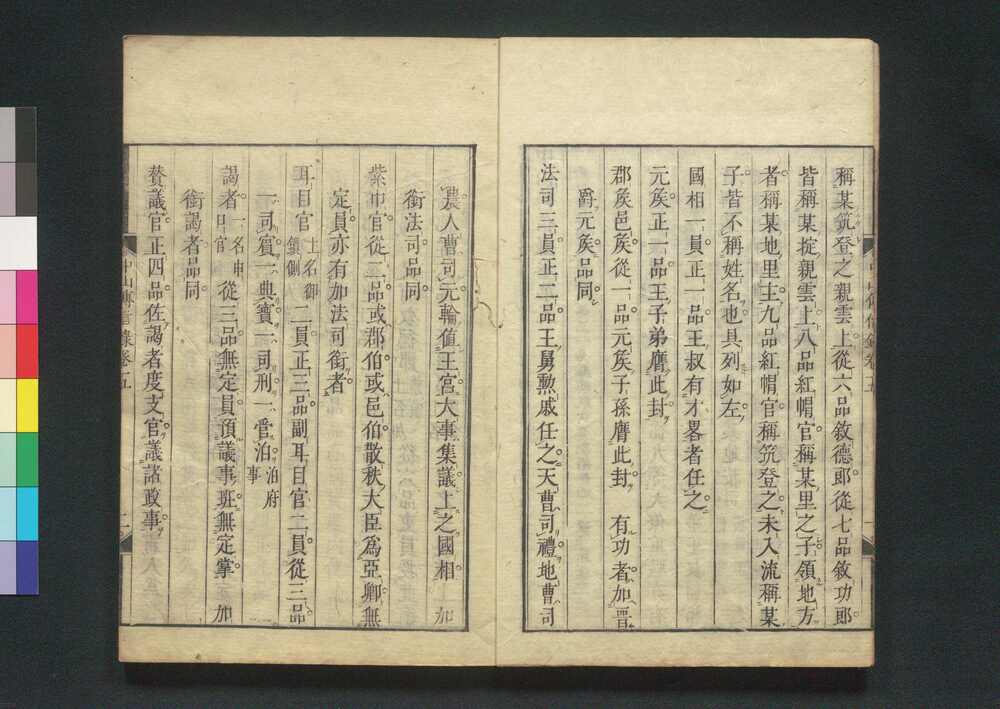 稱某筑登之親雲上從六品敘德郎從七品敘功郎
皆稱某掟親雲上八品紅帽官稱某里之子領地方
者稱某地里主九品紅帽官稱筑登之未入流稱某
子皆不稱姓名也具列如左
國相一員正一品王叔有才畧者任之
元矦正一品王子弟膺此封
郡矦邑矦從一品元矦子孫膺此封 有功者加晋
爵元矦品同
法司三員正二品王舅勲戚任之天曹司禮地曹司
農人曹司元輪值王宮大事集議上之國相 加
銜法司品同
紫巾官從二品或郡伯或邑伯散秩大臣為亞卿無
定員亦有加法司銜者
耳目官 土名御鎖側 二員正三品副耳目官二員從三品
一司賓一典寶一司刑一管泊 泊府事
謁者 一名申口官 從三品無定員預議事班無定掌 加
銜謁者品同
賛議官正四品佐謁者度支官議諸政事
中山傳信錄卷五 二